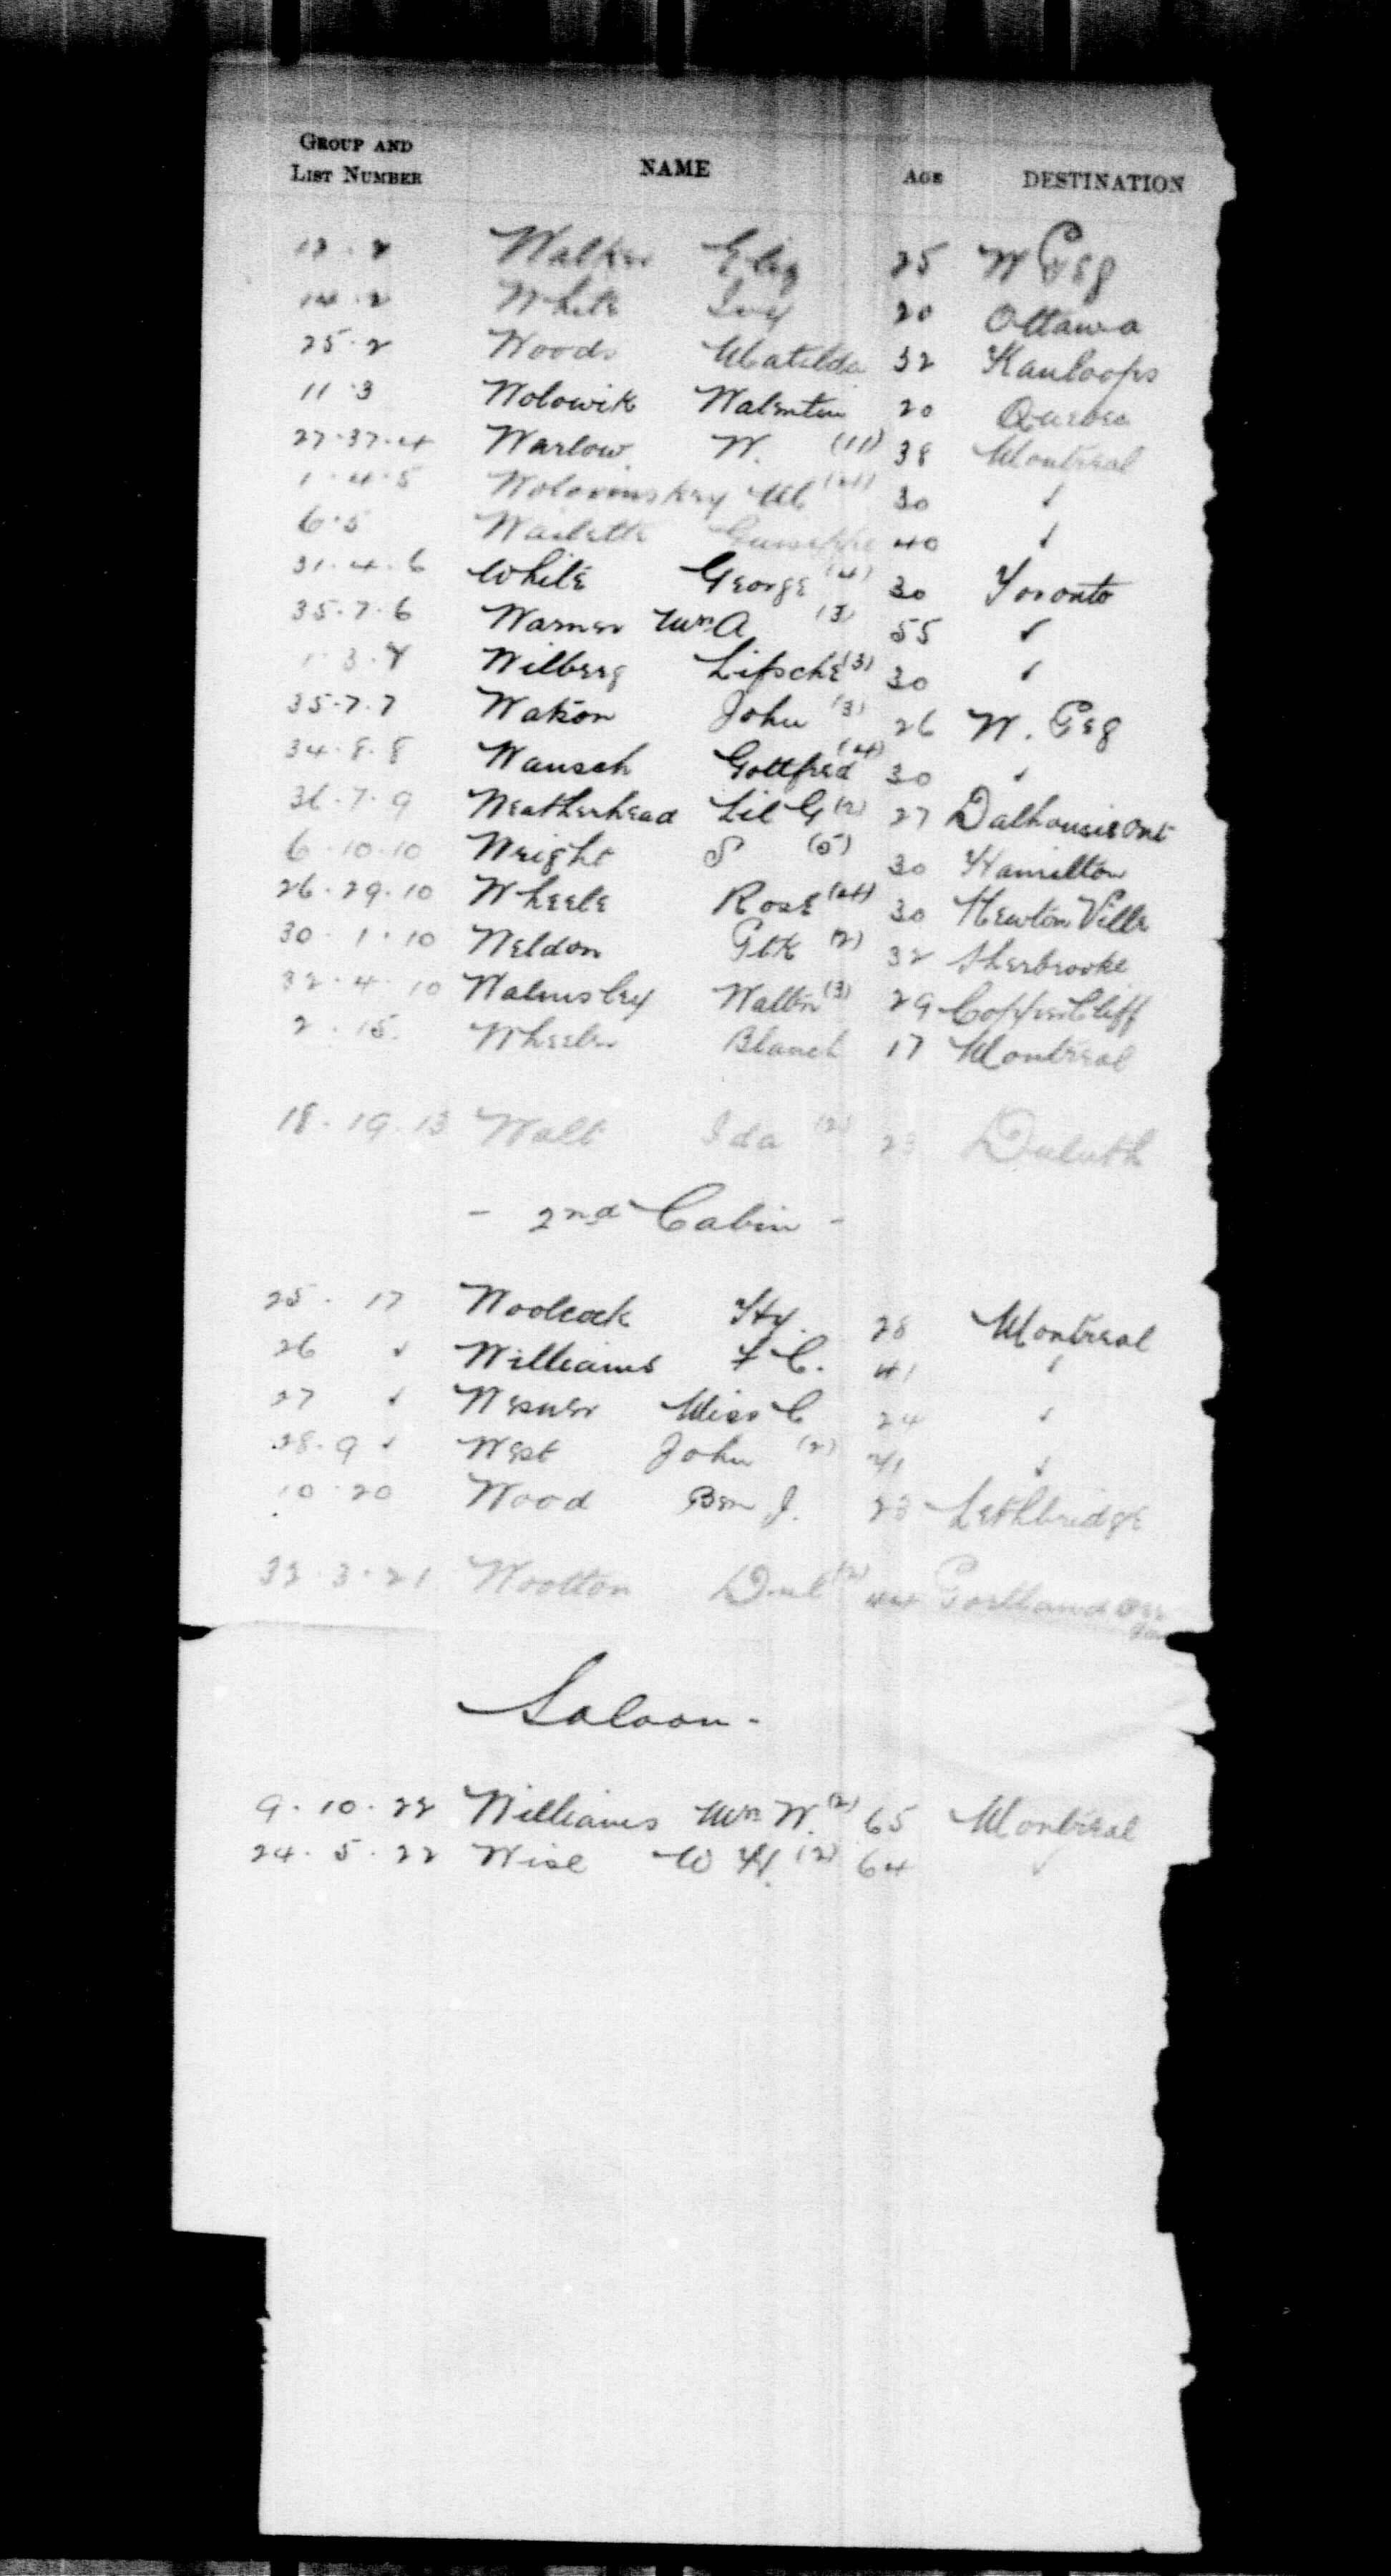 GROUP AND LIST NUMBER NAME AGE DESTINATION
13 · 2 Walker Eliz 25 W Peg
14 · 2 White Ivy 20 Ottawa
25 · 2 Woods Matilda 32 Kamloops
11 · 3 Wolowik Walentin 20 Quebec
27 · 37 · 4 Warlow W. (11) 38 Montreal
1 · 4 · 5 M (4) 30 "
6 · 5 Guiseppe 40 "
31 · 4 · 6 White George (4) 30 Toronto
35 · 7 · 6 Warner Wm A (3) 55 "
1 · 3 · 7 Wilberg Lipsche (3) 30 "
35 · 7 · 7 Watson John (3) 26 W. Peg
34 · 8 · 8 Wausch Gottfried (4) 30 "
36 · 7 · 9 Weatherhead Lil G (2) 27 Dalhousie Ont
6 · 10 · 10 Wright S (5) 30 Hamilton
26 · 29 · 10 Wheele Rose (4) 30 Newton Ville
30 · 1 · 10 Weldon Ptk (2) 32 Sherbrooke
32 · 4 · 10 Walmsley Walter (3) 29 Copper Cliff
2 · 15 Wheeler Blanch 17 Montreal
18 · 19 · 13 Walt Ida (2) 23 Duluth
- 2nd Cabin -
25 · 17 Woolcock Hy. 28 Montreal
26 " Williams F C. 41 "
27 " Miss C 24 "
28 · 9 " West John (2) 41 "
10 · 20 Wood Ben J. 23 Lethbridge
32 · 3 · 21 Wootton Danl (2) 44 Portland
Saloon -
9 · 10 · 22 Williams Wm W. (2) 65 Montreal
24 · 5 · 22 Wise W H. (2) 64 "